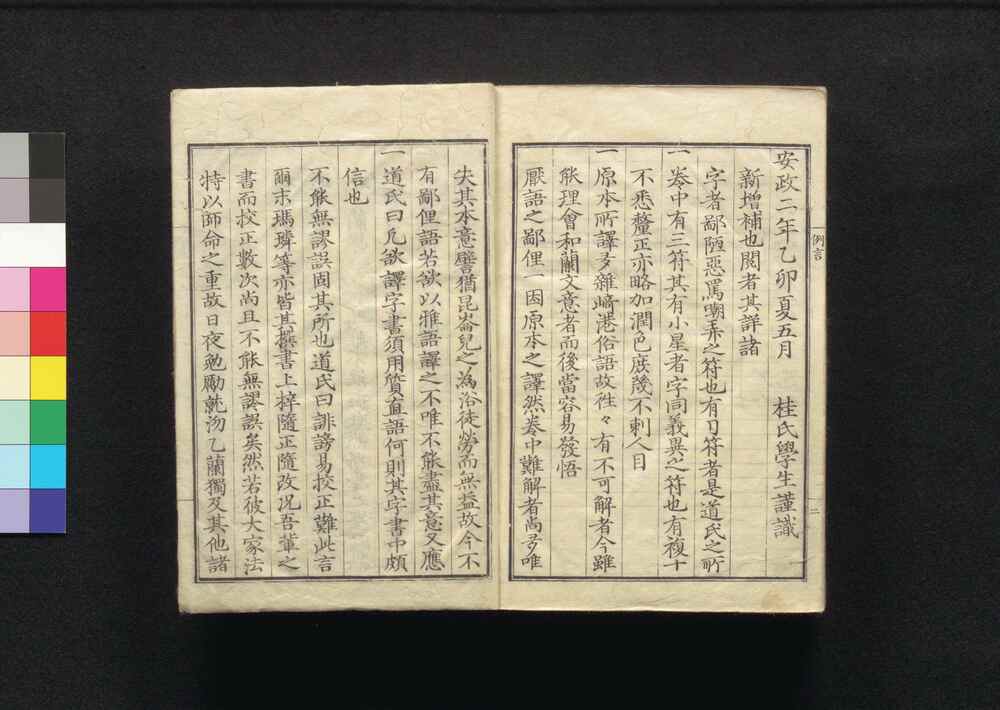 特以師命之重故日夜勉勵就沕乙蘭獨及其他諸
書而挍正數次尚且不能無謬誤矣然若彼大家法
爾末瑪璘等亦皆其撰書上梓隨正隨改况吾輩之
不能無謬誤固其所也道氏曰誹謗易挍正難此言
信也
一道氏曰凡欲譯字書須用質直語何則其字書中頗
有鄙俚語若欲以雅語譯之不唯不能盡其意又應
失其本意譬猶昆崙兒之為浴徒勞而無益故今不
厭語之鄙俚一因原本之譯然卷中難解者尚多唯
能理會和蘭文意者而後當容易發悟
一原本所譯多雜﨑港俗語故往々有不可解者今雖
不悉釐正亦略加潤色庶幾不刺人目
一卷中有三符其有小星者字同義異之符也有複十
字者鄙陋惡罵嘲弄之符也有刀符者是道氏之所
新增補也閱者其詳諸
安政二年乙卯夏五月　桂氏學生謹識
例言
二